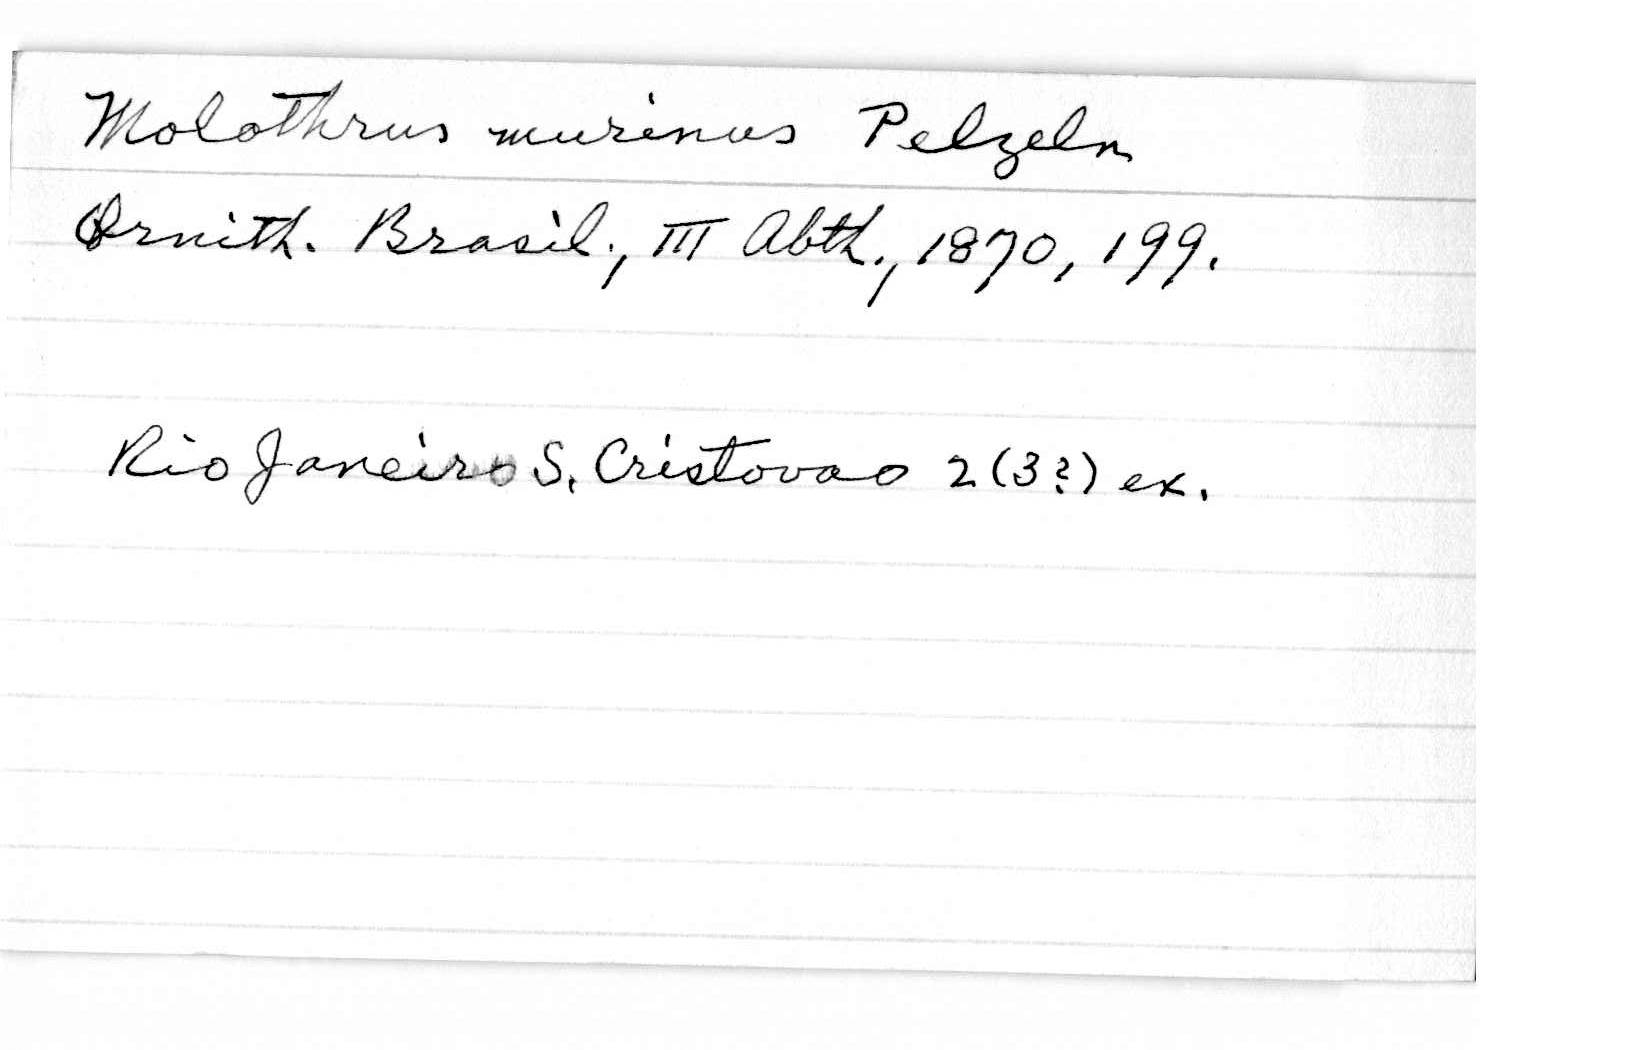 Molothrus murinus Pelzeln
Ornith. Brasil., III Abth., 1870, 199.
Rio Janeiro S. Cristovao 2 (3?) ex.